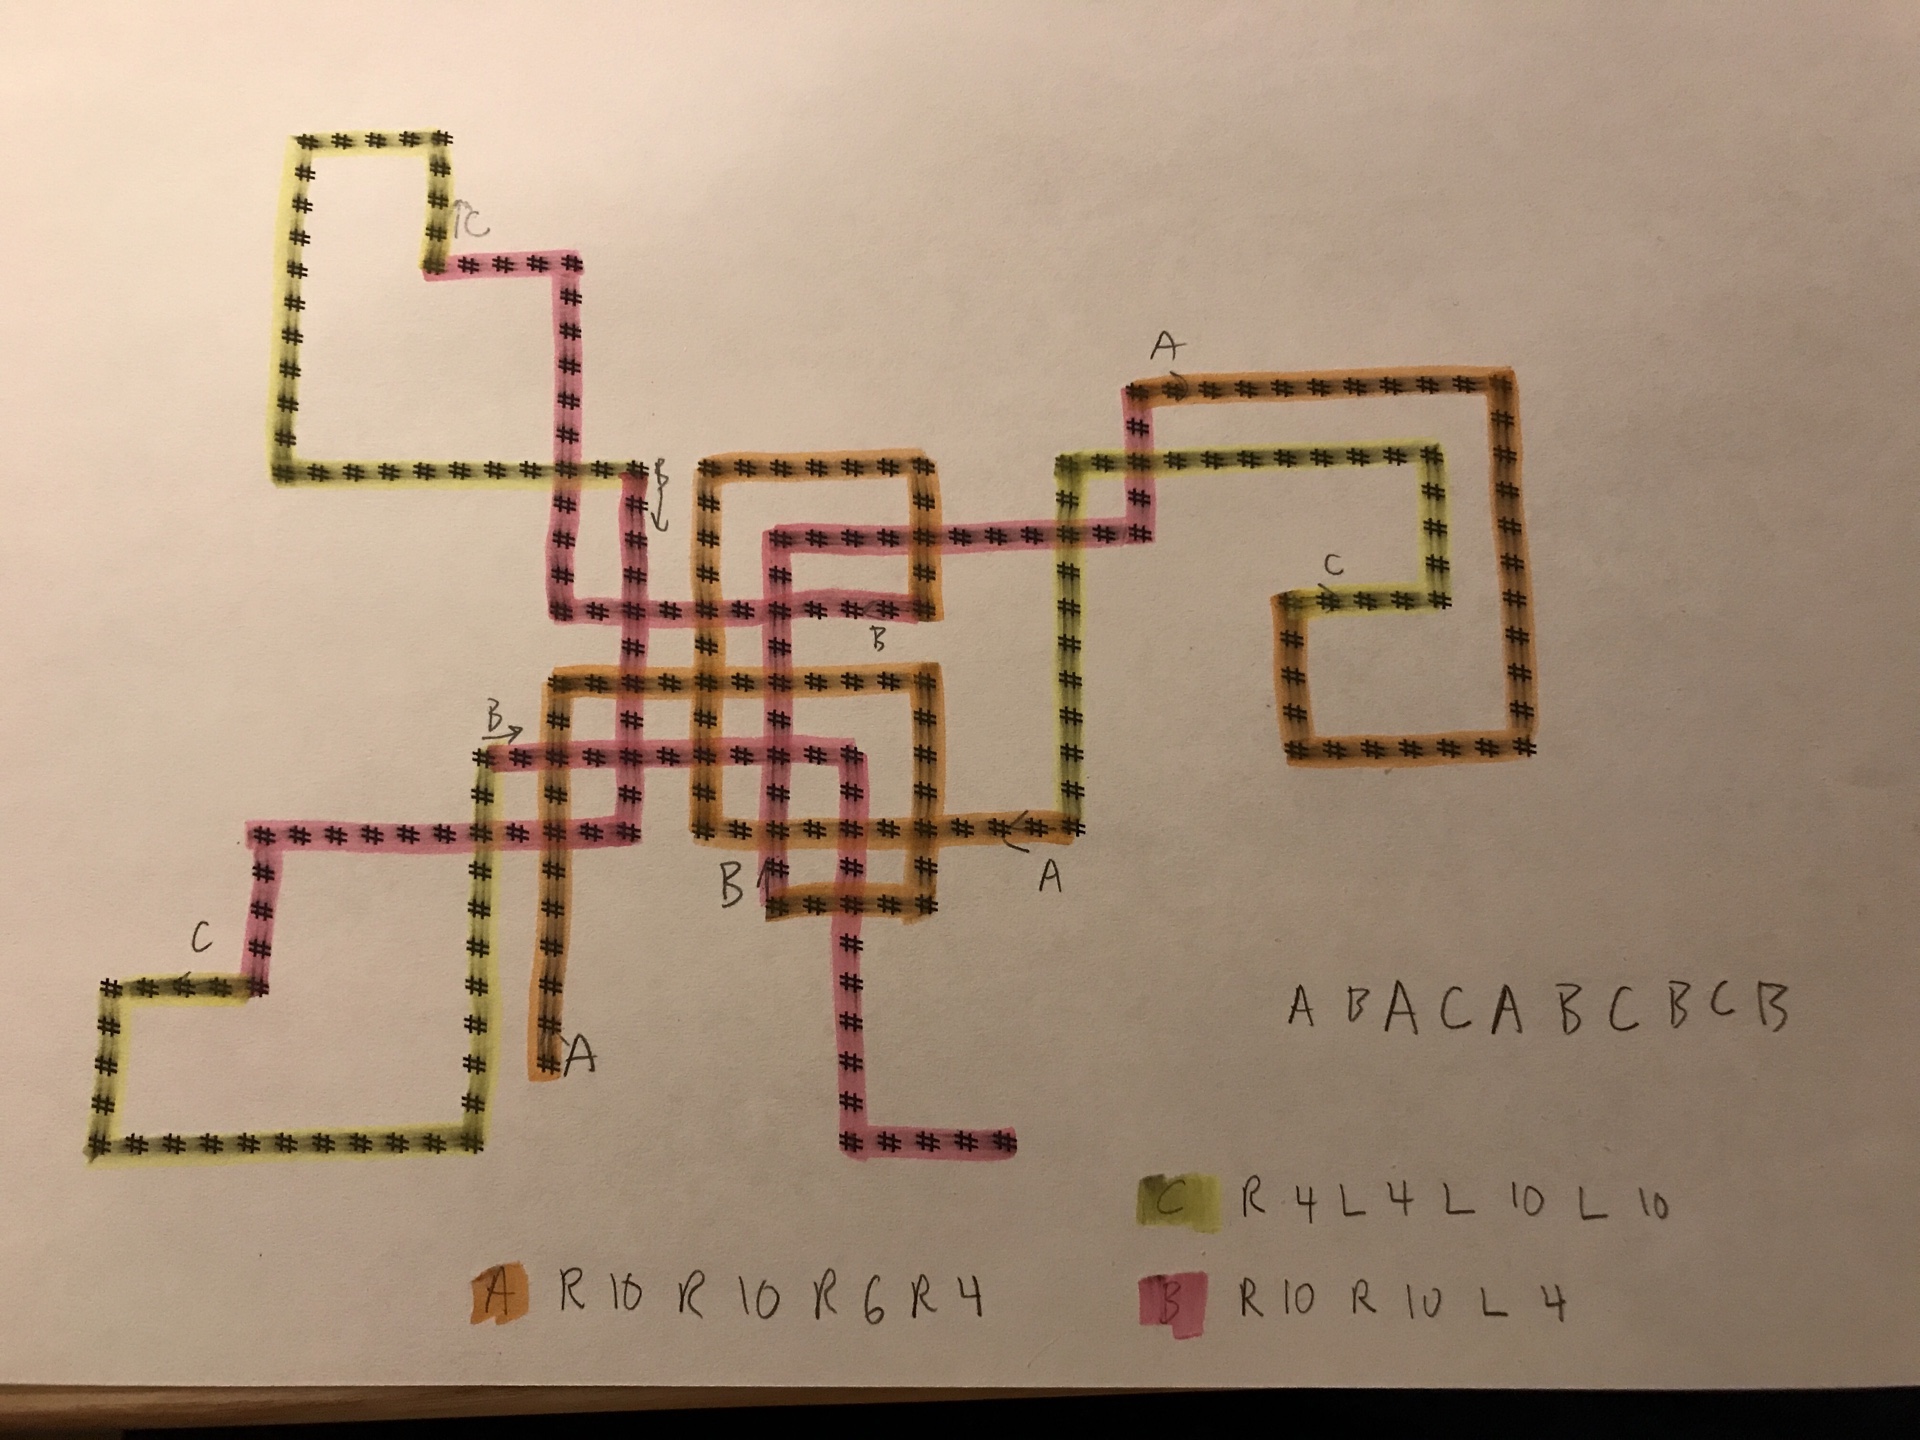 C
A
B
C
B
B
B
A
C
A
A B A C A B C B C B
C R 4 L 4 L 10 L 10
A R 10 R 10 R 6 R 4
B R 10 R 10 L 4